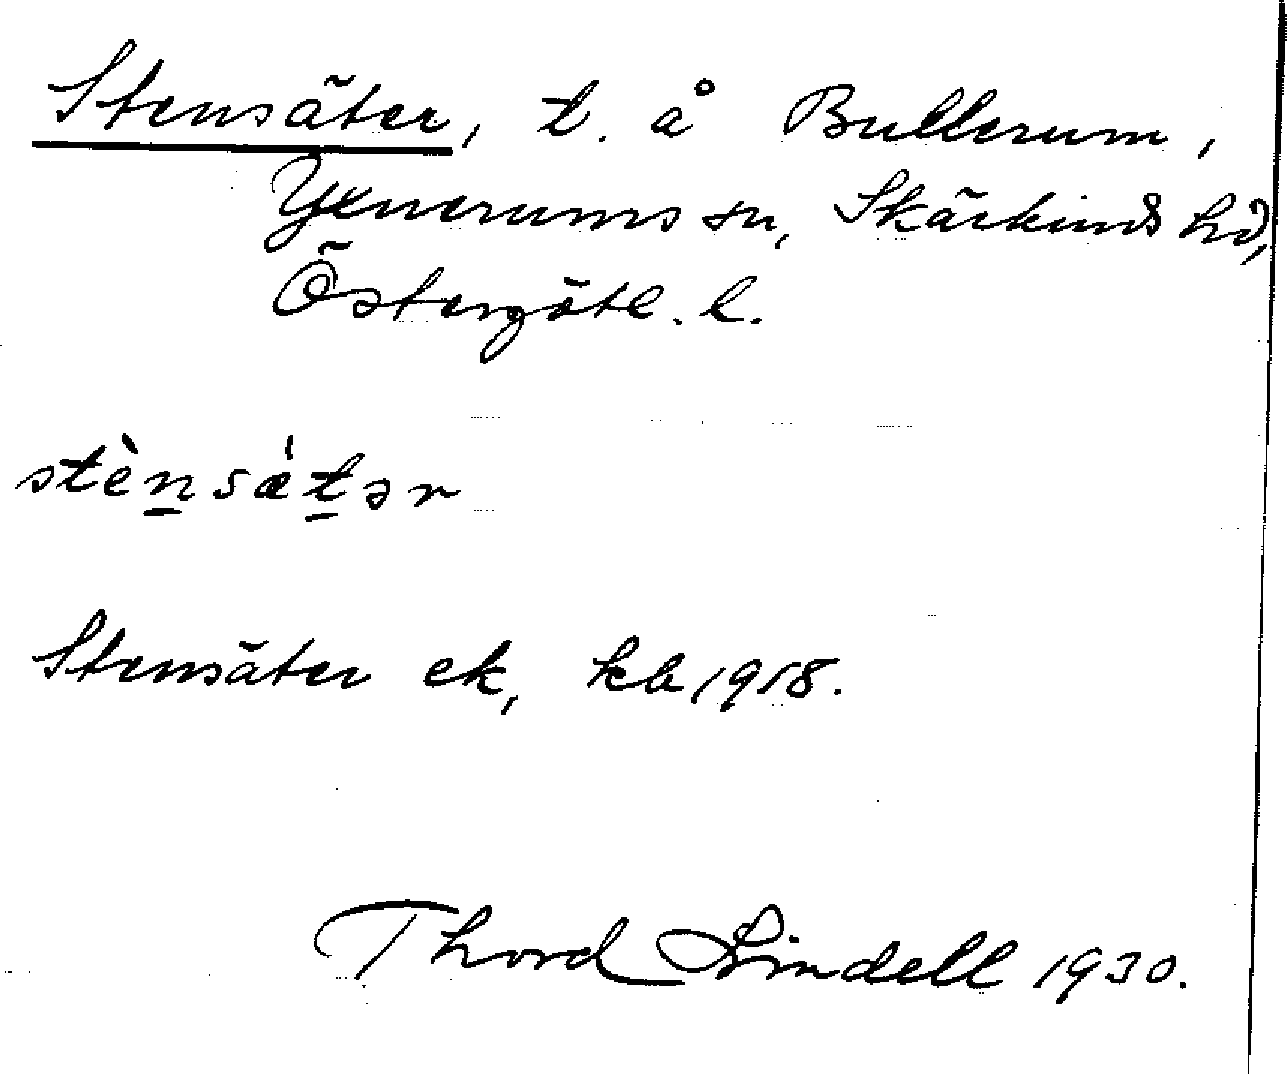 Stensäter, t. å Bullerum,
Yxnerums sn, Skärkinds hd,
Östergötl. l.
stènsǽtər
Stensäter ek, kb 1918.
Thord Lindell 1930.